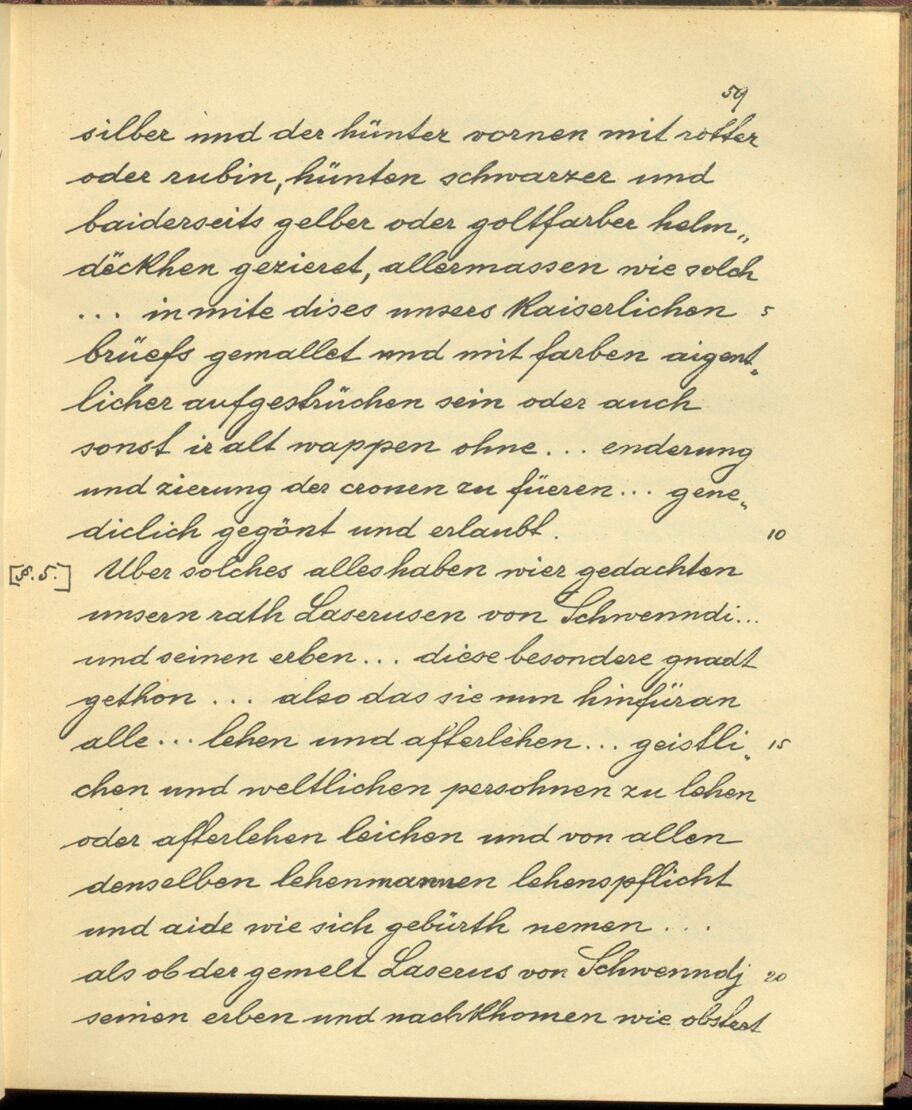 59
silber und der hünter vornen mit rotter
oder rubin, hünten schwarzer und
baiderseits gelber oder goltfarber helm„
döckhen gezieret, allermassen wie solch
... in mite dises unsers Kaiserlichen 5
brüefs gemallet und mit farben aigent„
licher aufgestrüchen sein oder auch
sonst ir alt wappen ohne... enderung
und zierung der cronen zu füeren... gene„
diclich gegönt und erlaubt. 10
[§. 5.] Uber solches alles haben wier gedachten
unsern rath Laserusen von Schwenndi...
und seinen erben... diese besondere gnadt
gethon... also das sie nun hinfüran
alle... lehen und afterlehen... geistli„ 15
chen und weltlichen persohnen zu lehen
oder afterlehen leichen und von allen
denselben lehenmannen lehenspflicht
und aide wie sich gebürth nemen...
als ob der gemelt Laserus von Schwenndj 20
seinen erben und nachkhomen wie obstet